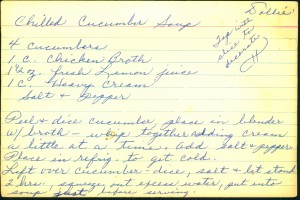 Dollie
Chilled Cucumber Soup
Top with
slice to
decorate
4 Cucumbers
1 C. Chicken Broth
1½ oz. fresh Lemon juice
1 C. Heavy Cream
Salt & Pepper
Peel & dice cucumber, place in blender
w/ broth - whip together adding cream
a little at a time. Add salt & pepper
Place in refrig. to get cold.
Left over cucumber - dice, salt & let stand
2 hrs., squeeze out excess water, put into
soup just before serving.